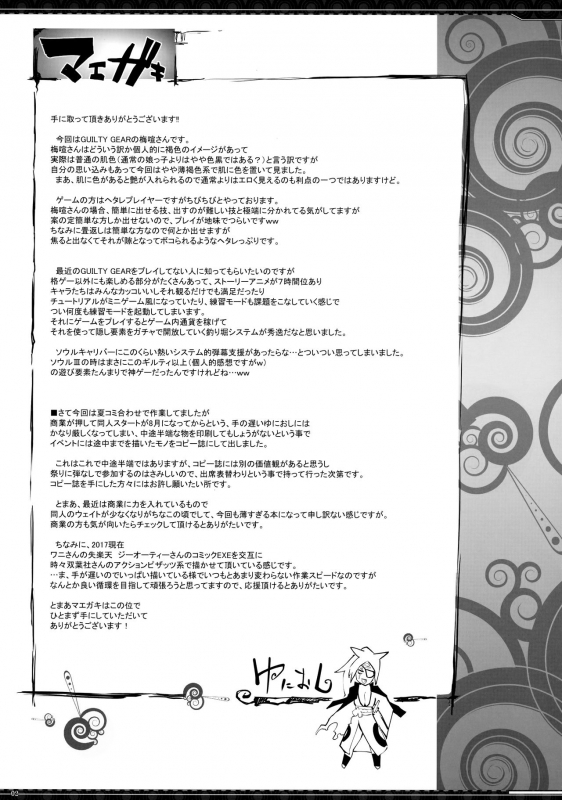 マエガキ
手に取って頂きありがとうございます!!
今回はGUILTY GEARの梅喧さんです。
梅喧さんはどういう訳か個人的に褐色のイメージがあって
実際は普通の肌色(通常の娘っ子よりはやや色黒ではある?)と言う訳ですが
自分の思い込みもあって今回はやや薄褐色系で肌に色を置いて見ました。
まあ、肌に色があると艶が入れられるので通常よりはエロく見えるのも利点の一つではありますけど。
ゲームの方はヘタレプレイヤーですがちびちびとやっております。
梅喧さんの場合、簡単に出せる技、出すのが難しい技と極端に分かれてる気がしてますが
案の定簡単な方しか出せないので、プレイが地味でつらいですww
ちなみに畳返しは簡単な方なので何とか出せますが
焦ると出なくてそれが隙となってボコられるようなヘタレっぷりです。
最近のGUILTY GEARをプレイしてない人に知ってもらいたいのですが
格ゲー以外にも楽しめる部分がたくさんあって、ストーリーアニメが7時間位あり
キャラたちはみんなカッコいいしそれ観るだけでも満足だったり
チュートリアルがミニゲーム風になっていたり、練習モードも課題をこなしていく感じで
つい何度も練習モードを起動してしまいます。
それにゲームをプレイするとゲーム内通貨を稼げて
それを使って隠し要素をガチャで開放していく釣り堀システムが秀逸だなと思いました。
ソウルキャリバーにこのくらい熱いシステム的弾幕支援があったらな…とついつい思ってしまいました。
ソウルⅢの時はまさにこのギルティ以上(個人的感想ですがw)
の遊び要素たんまりで神ゲーだったんですけれどね…ww
■さて今回は夏コミ合わせで作業してましたが
商業が押して同人スタートが8月になってからという、手の遅いゆにおしには
かなり厳しくなってしまい、中途半端な物を印刷してもしょうがないという事で
イベントには途中までを描いたモノをコピー誌にして出しました。
これはこれで中途半端ではありますが、コピー誌には別の価値観があると思うし
祭りに弾なしで参加するのはさみしいので、出席表替わりという事で持って行った次第です。
コピー誌を手にした方々にはお許し願いたい所です。
とまあ、最近は商業に力を入れているもので
同人のウェイトが少なくなりがちなこの頃でして、今回も薄すぎる本になって申し訳ない感じですが。
商業の方も気が向いたらチェックして頂けるとありがたいです。
ちなみに、2017現在
ワニさんの失楽天 ジーオーティーさんのコミックEXEを交互に
時々双葉社さんのアクションピザッツ系で描かせて頂いている感じです。
…ま、手が遅いのでいっぱい描いている様でいつもとあまり変わらない作業スピードなのですが
なんとか良い循環を目指して頑張ろうと思ってますので、応援頂けるとありがたいです。
とまあマエガキはこの位で
ひとまず手にしていただいて
ありがとうございます!
ゆにおし
02